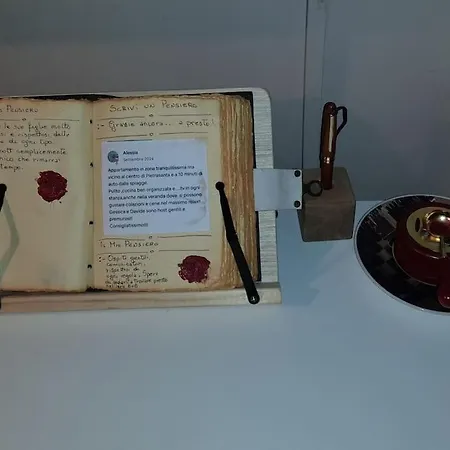 PENSIERO
le sue figlie molto
e rispettosi dello
di ogni tipo.
semplicemente
che rimarrai
tempo.
SCRIVI UN PENSIERO
:- Grazie ancora... a presto!
Alessia
Settembre 2024
Appartamento in zona tranquillissima ma
vicino al centro di Pietrasanta e a 10 minuti di
auto dalle spiagge.
Pulito, cucina ben organizzata e
anche nella veranda dove si possono
gustare colazioni e cene nel massimo relax!!
Gessica e Davide sono host gentili e
premurosi!
Consigliatissimo!!
IL MIO PENSIERO
:- Ospiti gentili,
comunicativi,
rispettosi di
ogni regola. Spero